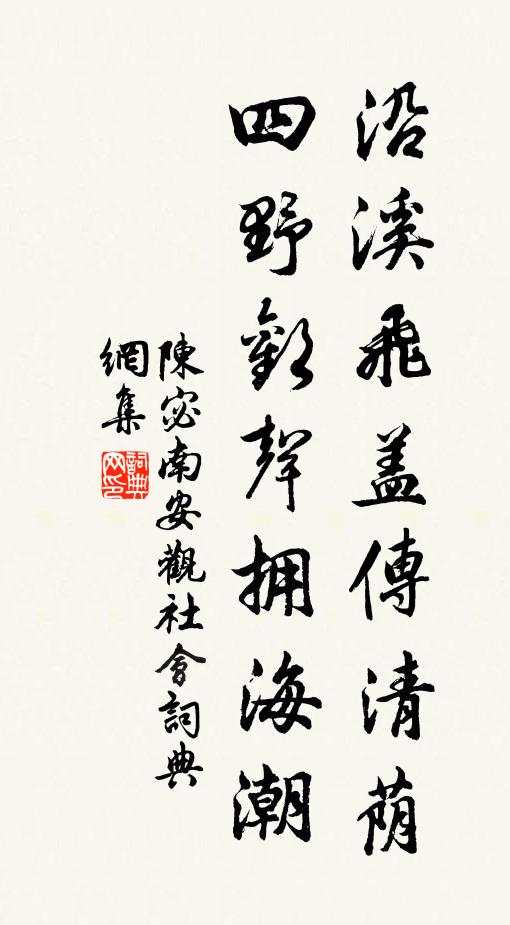 沿溪飛盖傳清蔭
四野歡聲拥海潮
陳宓南安觀社會詞典
網集
詞典
网印